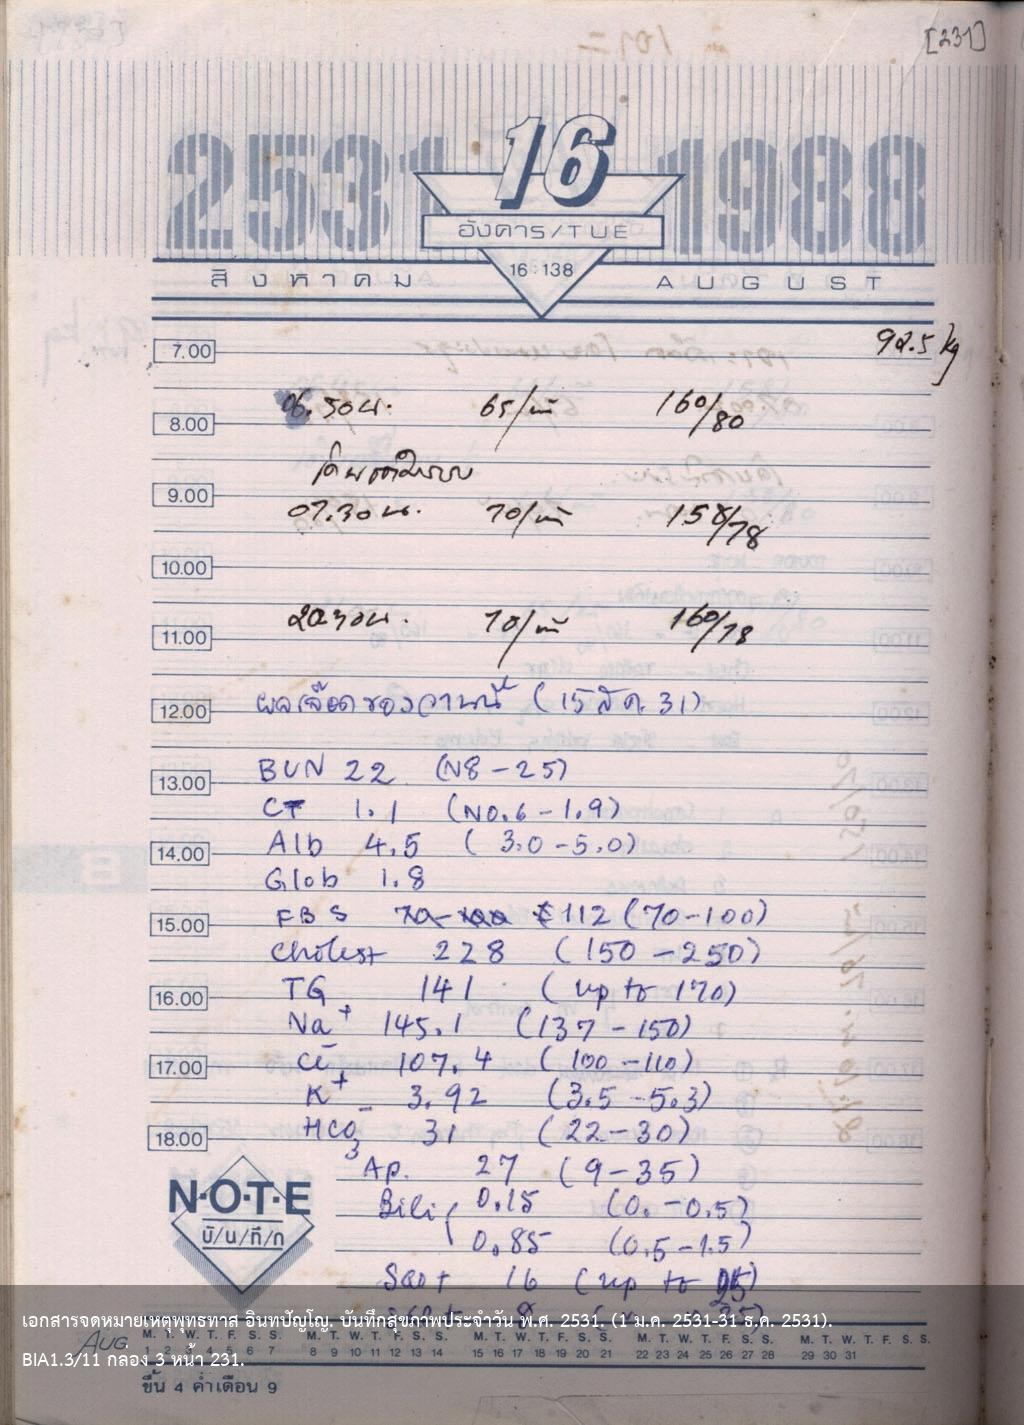 [231]
2531 16 1988
อังคาร/TUE
สิงหาคม 16 138 AUGUST
92.5 kg
7.00
06.30 น. 65/ 160/80
8.00
9.00
07.30 น. 70/ 158/78
10.00
70/ 160/78
11.00
ผลเลือดของวานนี้ (15 ส.ค. 31)
12.00
BUN 22 (N8-25)
13.00
1.1 (N0.6-1.9)
Alb 4.5 (3.0-5.0)
14.00
Glob 1.8
FBS 112 (70-100)
15.00
Cholest 228 (150-250)
TG 141 (up to 170)
16.00
Na+ 145.1 (137-150)
Cl- 107.4 (100-110)
17.00
K+ 3.92 (3.5-5.3)
HCO3- 31 (22-30)
18.00
Ap. 27 (9-35)
N·O·T·E
Bili { 0.15 (0.-0.5)
บั/น/ทึ/ก
0.85 (0.5-1.5)
16 (up to
เอกสารจดหมายเหตุพุทธทาส อินทปัญโญ. บันทึกสุขภาพประจำวัน พ.ศ. 2531. (1 ม.ค. 2531-31 ธ.ค. 2531).
AUG. M. T. W. T. F. S. S. M. T. W. T. F. S. S. M. T. W. T. F. S. S. M. T. W. T. F. S. S. M. T. W. T. F. S. S.
1 2 3 4 5 6 7 8 9 10 11 12 13 14 15 16 17 18 19 20 21 22 23 24 25 26 27 28 29 30 31
BIA1.3/11 กล่อง 3 หน้า 231.
ขึ้น 4 ค่ำเดือน 9